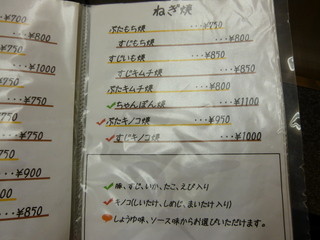 ねぎ焼
ぶたもち焼 ･･･¥750
すじもち焼 ･･･¥800
すじいも焼 ･･･¥850
すじキムチ焼 ･･･¥850
ぶたキムチ焼 ･･･¥800
ちゃんぽん焼 ･･･¥1100
ぶたキノコ焼 ･･･¥950
すじキノコ焼 ･･･¥1000
豚、すじ、いか、たこ、えび入り
キノコ(しいたけ、しめじ、まいたけ入り)
しょうゆ味、ソース味からお選びいただけます。
･･¥700
･･･¥800
¥750
･･･¥1000
･･¥750
･･･¥750
･･･¥900
･･･¥850